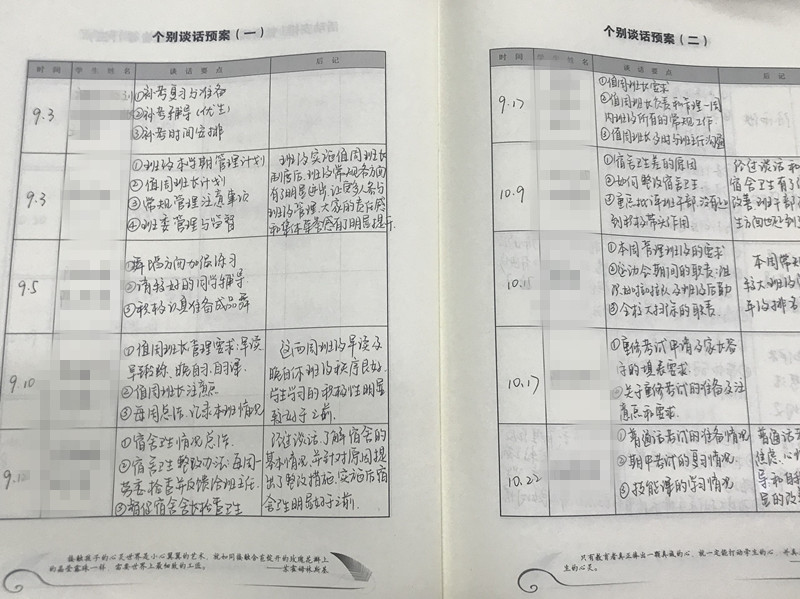 个别谈话预案（一）
时间 学生姓名 谈话要点 后记
9.3
①补考复习与准备
②补考辅导(优生)
③补考时间安排
9.3
①班级本学期管理计划
②值周班长计划
③常规管理注意事项
④班委管理与监督
班级实施值周班长
制度后,班级常规各方面
有了明显进步,让更多人参与
班级管理,大家的责任感
和集体荣誉感有了明显提升.
9.5
①舞蹈方向加强练习
②请较好的同学辅导
③积极认真准备成品舞
9.10
①值周班长管理要求:早读
早锻炼、晚自习、自习课.
②值周班长注意点
③每周总结,记录本班情况
这两周班级早读及
晚自休班级秩序良好,
学生学习的积极性明显
好于之前.
9.12
①宿舍卫生情况总结.
②宿舍卫生整改办法:每周一
劳委检查并反馈给班主任.
③督促宿舍舍长检查卫生
经过谈话,了解宿舍的
基本情况,并针对原因提
出了整改措施,实施后宿
舍卫生明显好于之前.
接触孩子的心灵世界是小心翼翼的艺术，就如同接触含苞绽开的玫瑰花瓣上
的晶莹露珠一样，需要世界上最细致的工作。
——苏霍姆林斯基
个别谈话预案（二）
时间 姓名 谈话要点 后记
9.17
①值周班长要求
②值周班长负责和管理一周
内班级所有的常规工作
③值周班长及时与班主任沟通
10.9
①宿舍卫生差的原因
②如何整改宿舍卫生.
③重点批评班干部,没有起
到积极带头作用
经过谈话和
宿舍卫生有了
改善,班干部
生方面也起到
10.1
①本周管理班级的要求
②运动会期间的职责:组
织啦啦队及班级后勤
③全校大扫除的职责.
本周常规
较大,班级
年级排名
10.17
①重修考试申请及家长签
字的填表要求.
②关于重修考试的准备及注
意点和要求.
10.22
①普通话考试的准备情况
②期中考试的复习情况
③技能课的学习情况
普通话
焦虑,心
导和自
显的改
只有教育者真正捧出一颗真诚的心，就一定能打动学生的心，并真
生的心灵。